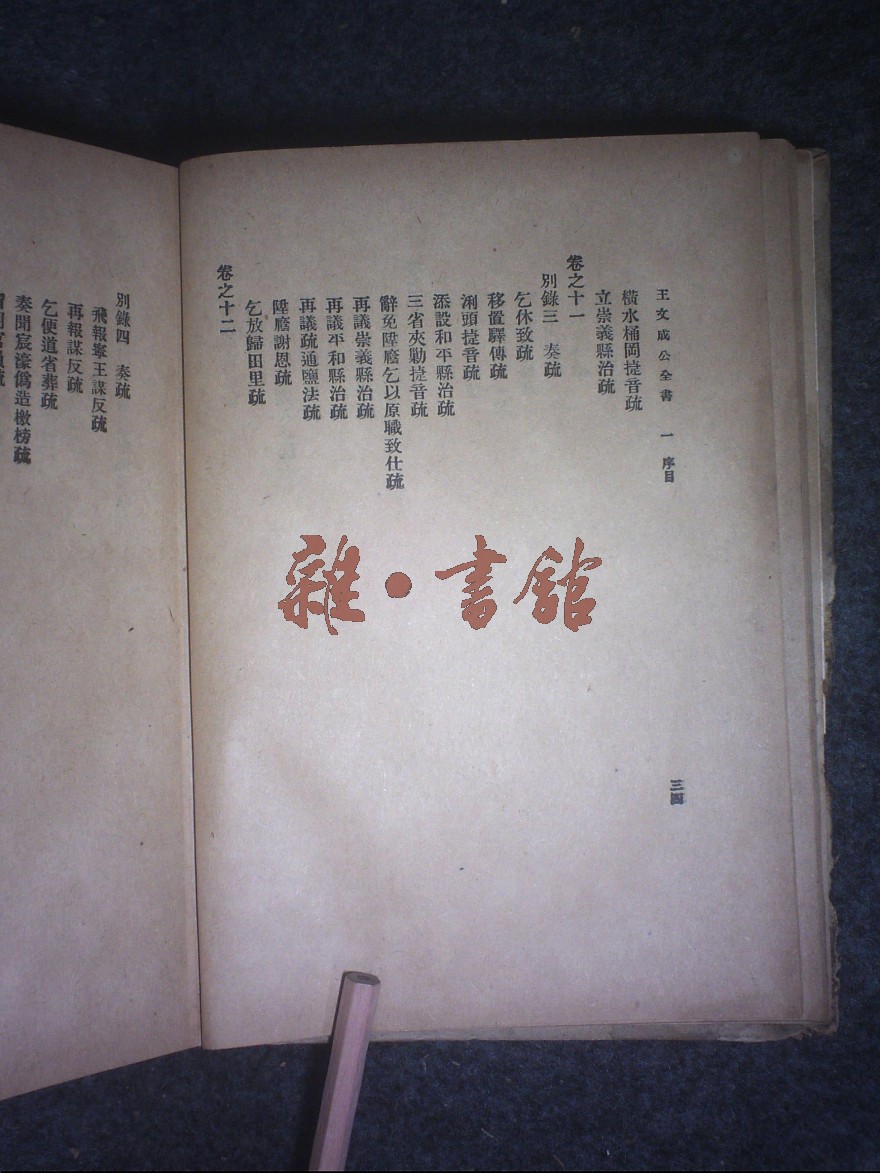 王文成公全書 一 序目
三四
橫水桶岡捷音疏
立崇義縣治疏
卷之十一
別錄三 奏疏
乞休致疏
移置驛傳疏
浰頭捷音疏
添設和平縣治疏
三省夾勦捷音疏
辭免陞廕乞以原職致仕疏
再議崇義縣治疏
再議平和縣治疏
再議疏通鹽法疏
陞廕謝恩疏
乞放歸田里疏
卷之十二
別錄四 奏疏
飛報寧王謀反疏
再報謀反疏
乞便道省葬疏
奏聞宸濠僞造檄榜疏
雜·書館